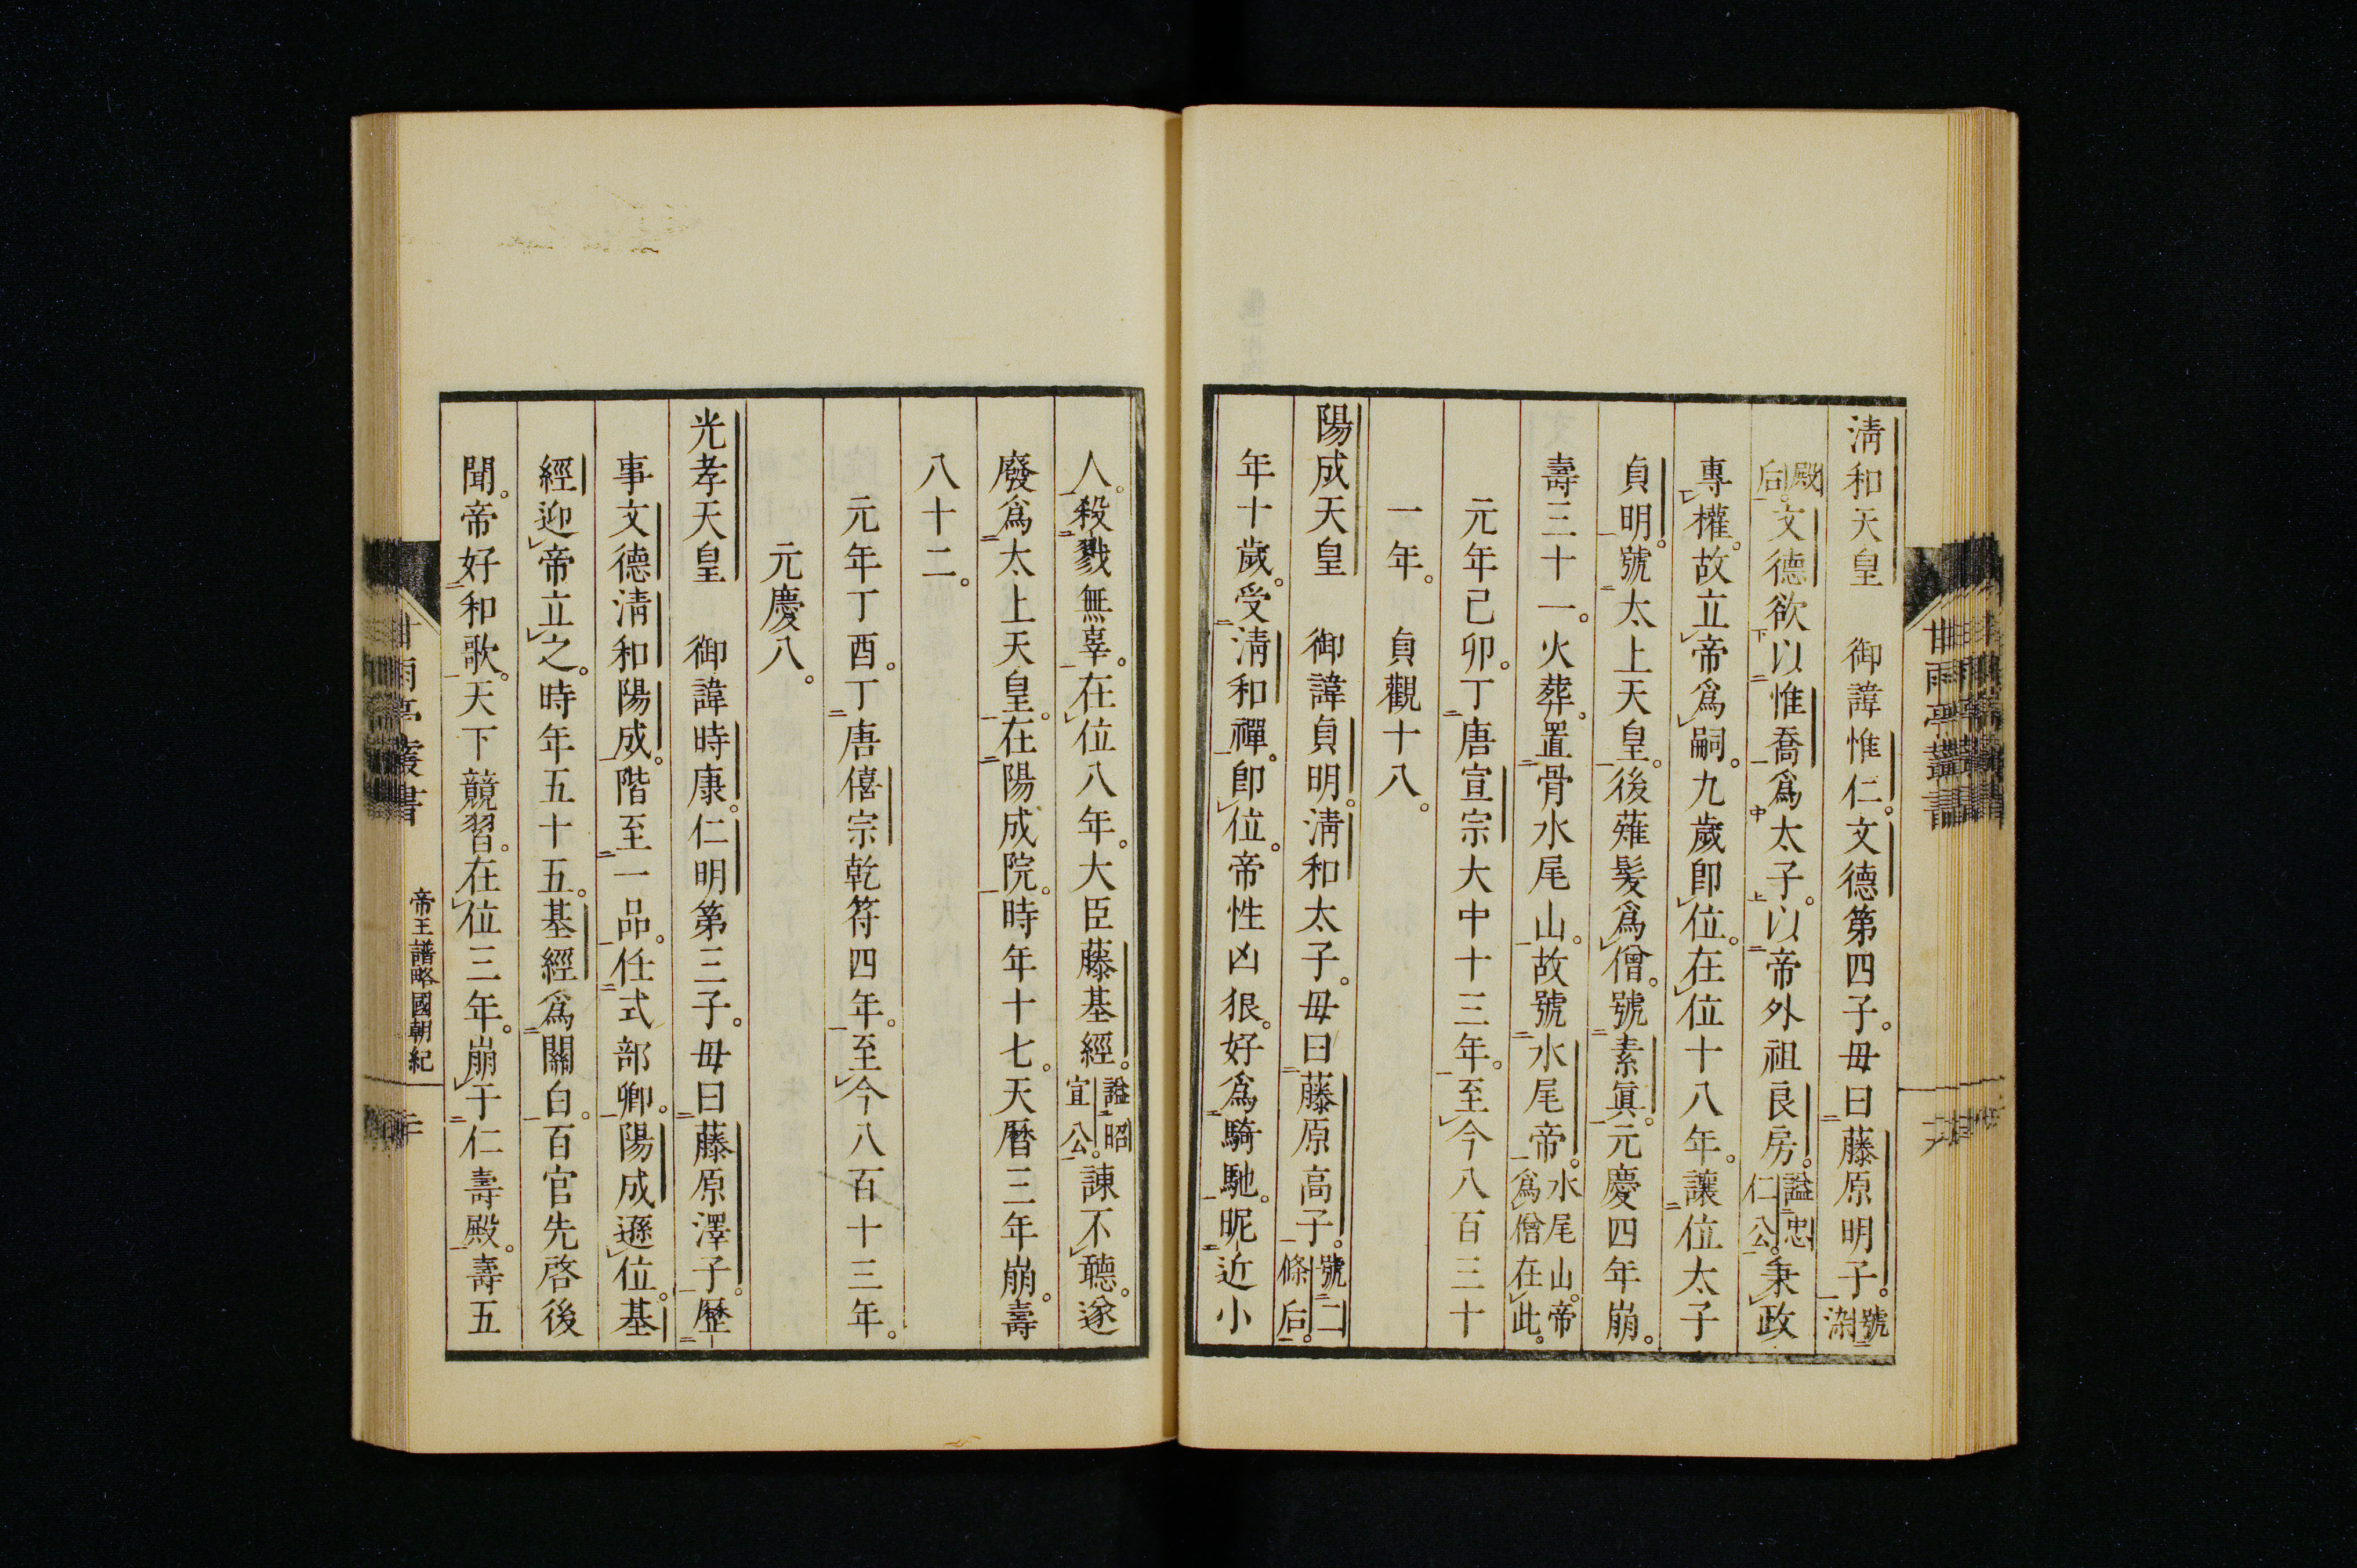 淸和天皇　御諱惟仁。文德第四子。毋曰藤原明子。號染
殿后。文德欲以惟喬爲太子。以帝外祖良房。謚忠仁公。秉政
專權。故立帝爲嗣。九歲卽位。在位十八年。讓位太子
貞明。號太上天皇。後薙髮爲僧。號素眞。元慶四年崩。
壽三十一。火葬。置骨水尾山。故號水尾帝。水尾山。帝爲僧在此。
元年己卯。丁唐宣宗大中十三年。至今八百三十
一年。　貞觀十八。
陽成天皇　御諱貞明。淸和太子。毋曰藤原高子。號二條后。
年十歲。受淸和禪。卽位。帝性凶狠。好爲騎馳。昵近小
人。殺戮無辜。在位八年。大臣藤基經。謚昭宣公。諫不聽。遂
廢爲太上天皇。在陽成院。時年十七。天曆三年崩。壽
八十二。
元年丁酉。丁唐僖宗乾符四年。至今八百十三年。
元慶八。
光孝天皇　御諱時康。仁明第三子。毋曰藤原澤子。歷
事文德淸和陽成。階至一品。任式部卿。陽成遜位。基
經迎帝立之。時年五十五。基經爲關白。百官先啓後
聞。帝好和歌。天下競習。在位三年。崩于仁壽殿。壽五
甘雨亭叢書
帝王譜略國朝紀